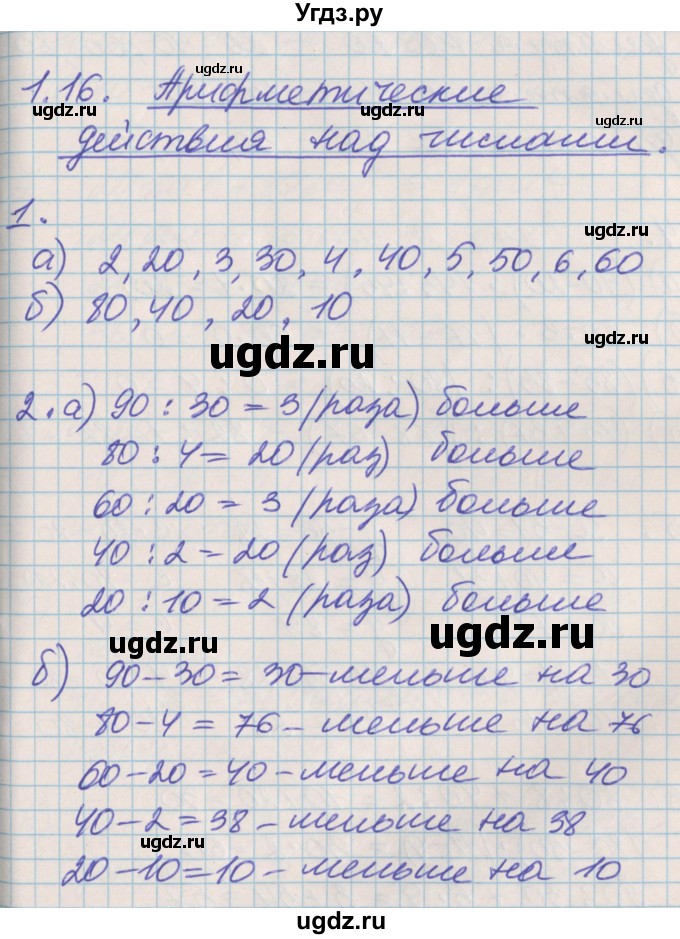 Угдз.ру
ugdz.ru
1.16. Арифметические
ugdz.ru ugdz.ru ugdz.ru
действия над числами.
1.
ugdz.ru
а) 2, 20, 3, 30, 4, 40, 5, 50, 6, 60
ugdz.ru
б) 80, 40, 20, 10
ugdz.ru
ugdz.ru
2. а) 90 : 30 = 3 (раза) больше
80 : 4 = 20 (раз) больше
60 : 20 = 3 (раза) больше
40 : 2 = 20 (раз) больше
20 : 10 = 2 (раза) больше
ugdz.ru ugdz.ru
б) 90 – 30 = 30 – меньше на 30
80 – 4 = 76 – меньше на 76
60 – 20 = 40 – меньше на 40
40 – 2 = 38 – меньше на 38
ugdz.ru
20 – 10 = 10 – меньше на 10
ugdz.ru
ugdz.ru